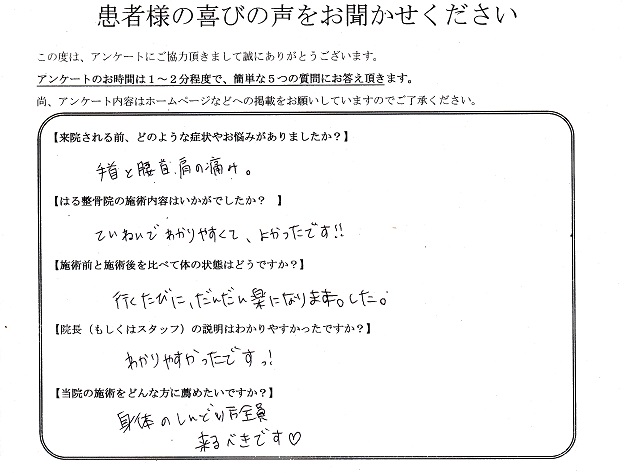 患者様の喜びの声をお聞かせください
この度は、アンケートにご協力頂きまして誠にありがとうございます。
アンケートのお時間は１～２分程度で、簡単な５つの質問にお答え頂きます。
尚、アンケート内容はホームページなどへの掲載をお願いしていますのでご了承ください。
【来院される前、どのような症状やお悩みがありましたか？】
手首と腰首肩の痛み。
【はる整骨院の施術内容はいかがでしたか？　】
ていねいでわかりやすくて、よかったです!!
【施術前と施術後を比べて体の状態はどうですか？】
行くたびに、だんだん楽になります。した。
【院長（もしくはスタッフ）の説明はわかりやすかったですか？】
わかりやすかったですっ!
【当院の施術をどんな方に薦めたいですか？】
身体のしんどい方全員
来るべきです♡